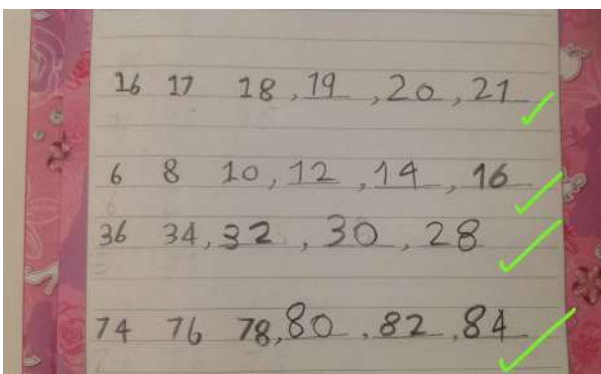 16 17 18, 19, 20, 21
6 8 10, 12, 14, 16
36 34, 32, 30, 28
74 76 78, 80, 82, 84